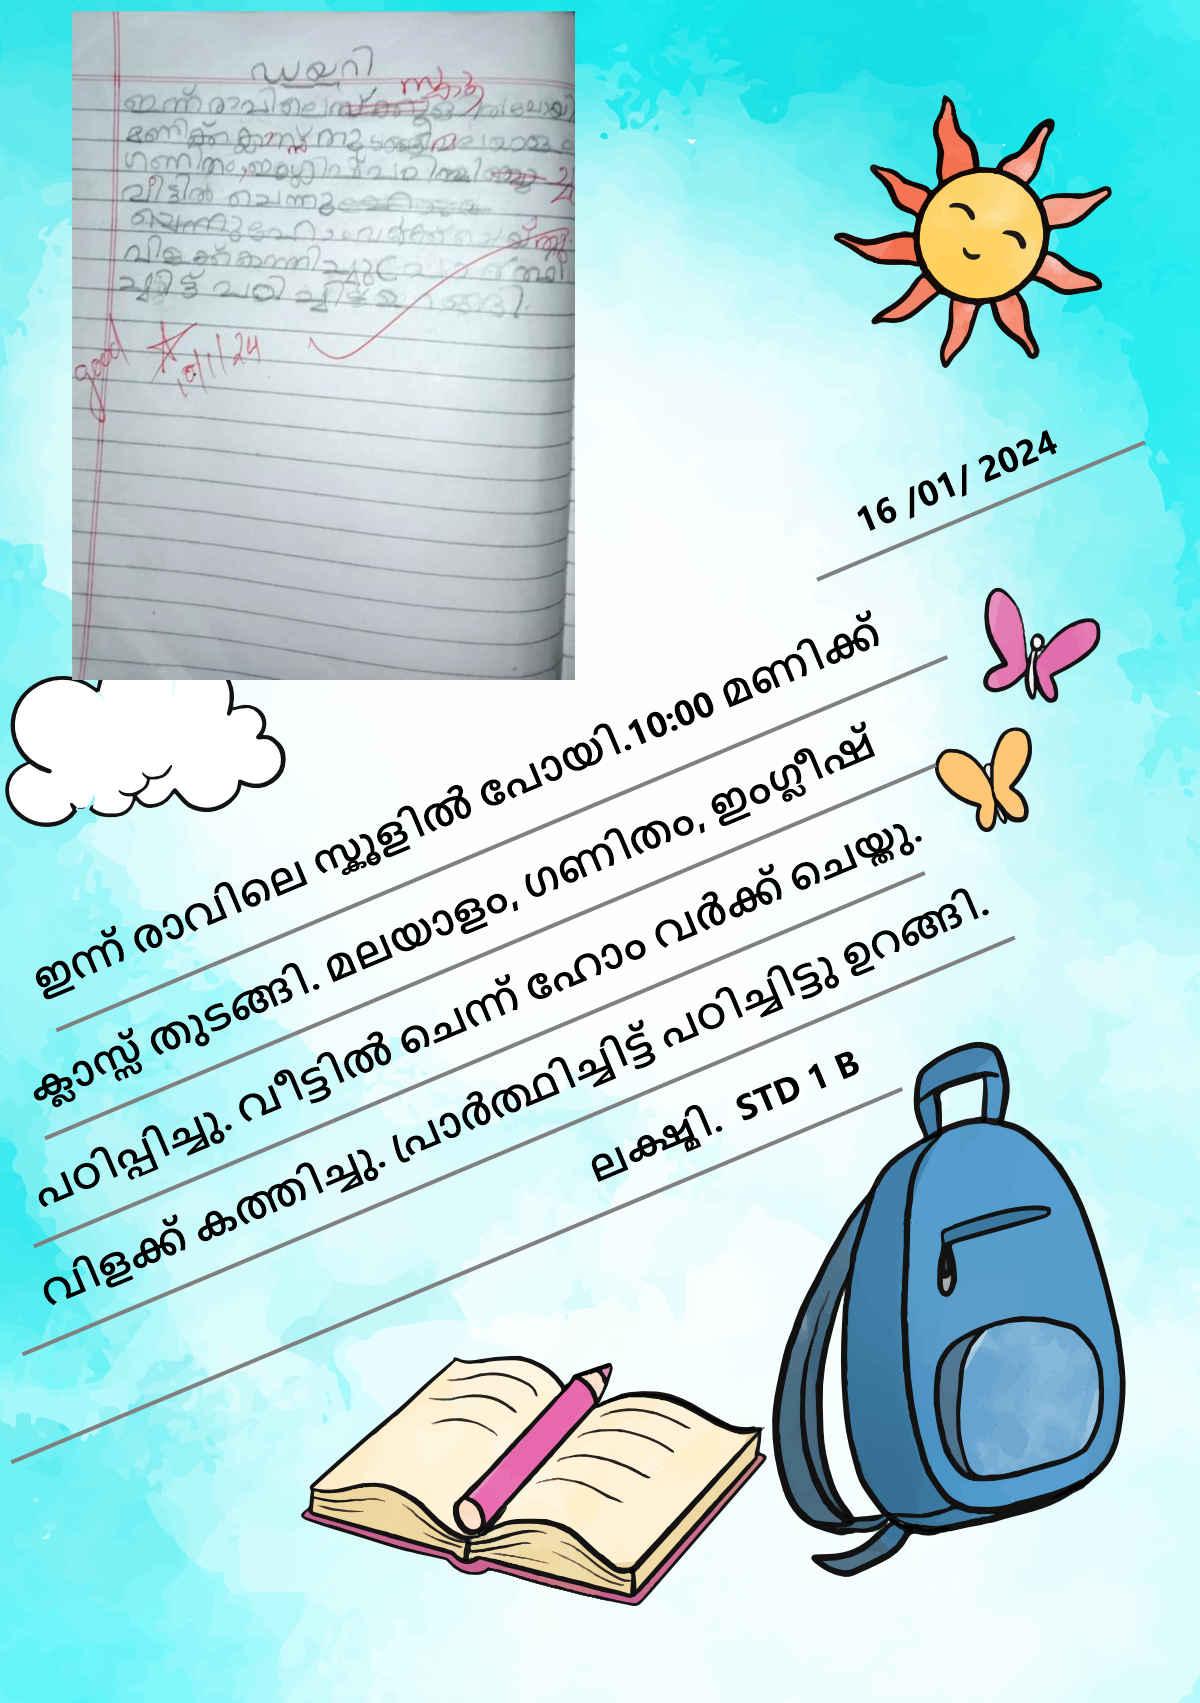 ഡയറി
സ്കൂ
ഇന്ന് രാവിലെ
മണിക്ക് ക്ലാസ്സ് തുടങ്ങി മലയാളം
ഗണിതം,
വീട്ടിൽ ചെന്നു
good
16/1/24
16 /01/ 2024
ഇന്ന് രാവിലെ സ്കൂളിൽ പോയി.10:00 മണിക്ക്
ക്ലാസ്സ് തുടങ്ങി. മലയാളം, ഗണിതം, ഇംഗ്ലീഷ്
പഠിപ്പിച്ചു. വീട്ടിൽ ചെന്ന് ഹോം വർക്ക് ചെയ്തു.
വിളക്ക് കത്തിച്ചു. പ്രാർത്ഥിച്ചിട്ട് പഠിച്ചിട്ടു ഉറങ്ങി.
ലക്ഷ്മി. STD 1 B